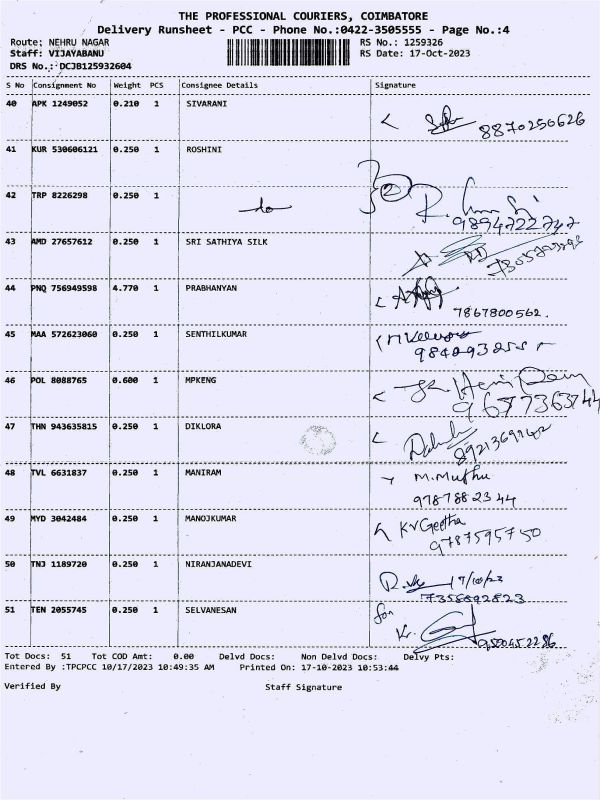 THE PROFESSIONAL COURIERS, COIMBATORE
Delivery Runsheet - PCC - Phone No.:0422-3505555 - Page No.:4
Route: NEHRU NAGAR RS No.: 1259326
Staff: VIJAYABANU RS Date: 17-Oct-2023
DRS No.: DCJB125932604
S No Consignment No Weight PCS Consignee Details Signature
40 APK 1249052 0.210 1 SIVARANI
8870250626
41 KUR 530606121 0.250 1 ROSHINI
2
42 TRP 8226298 0.250 1
9894722747
43 AMD 27657612 0.250 1 SRI SATHIYA SILK
44 PNQ 756949598 4.770 1 PRABHANYAN
7867800562.
45 MAA 572623060 0.250 1 SENTHILKUMAR
46 POL 8088765 0.600 1 MPKENG
9677363744
47 THN 943635815 0.250 1 DIKLORA
48 TVL 6631837 0.250 1 MANIRAM M. Muthu
9787882344
49 MYD 3042484 0.250 1 MANOJKUMAR KV Geetha
9787595750
50 TNJ 1189720 0.250 1 NIRANJANADEVI
17/10/23
7358692823
51 TEN 2055745 0.250 1 SELVANESAN for
9500452286
Tot Docs: 51 Tot COD Amt: 0.00 Delvd Docs: Non Delvd Docs: Delvy Pts:
Entered By :TPCPCC 10/17/2023 10:49:35 AM Printed On: 17-10-2023 10:53:44
Verified By Staff Signature